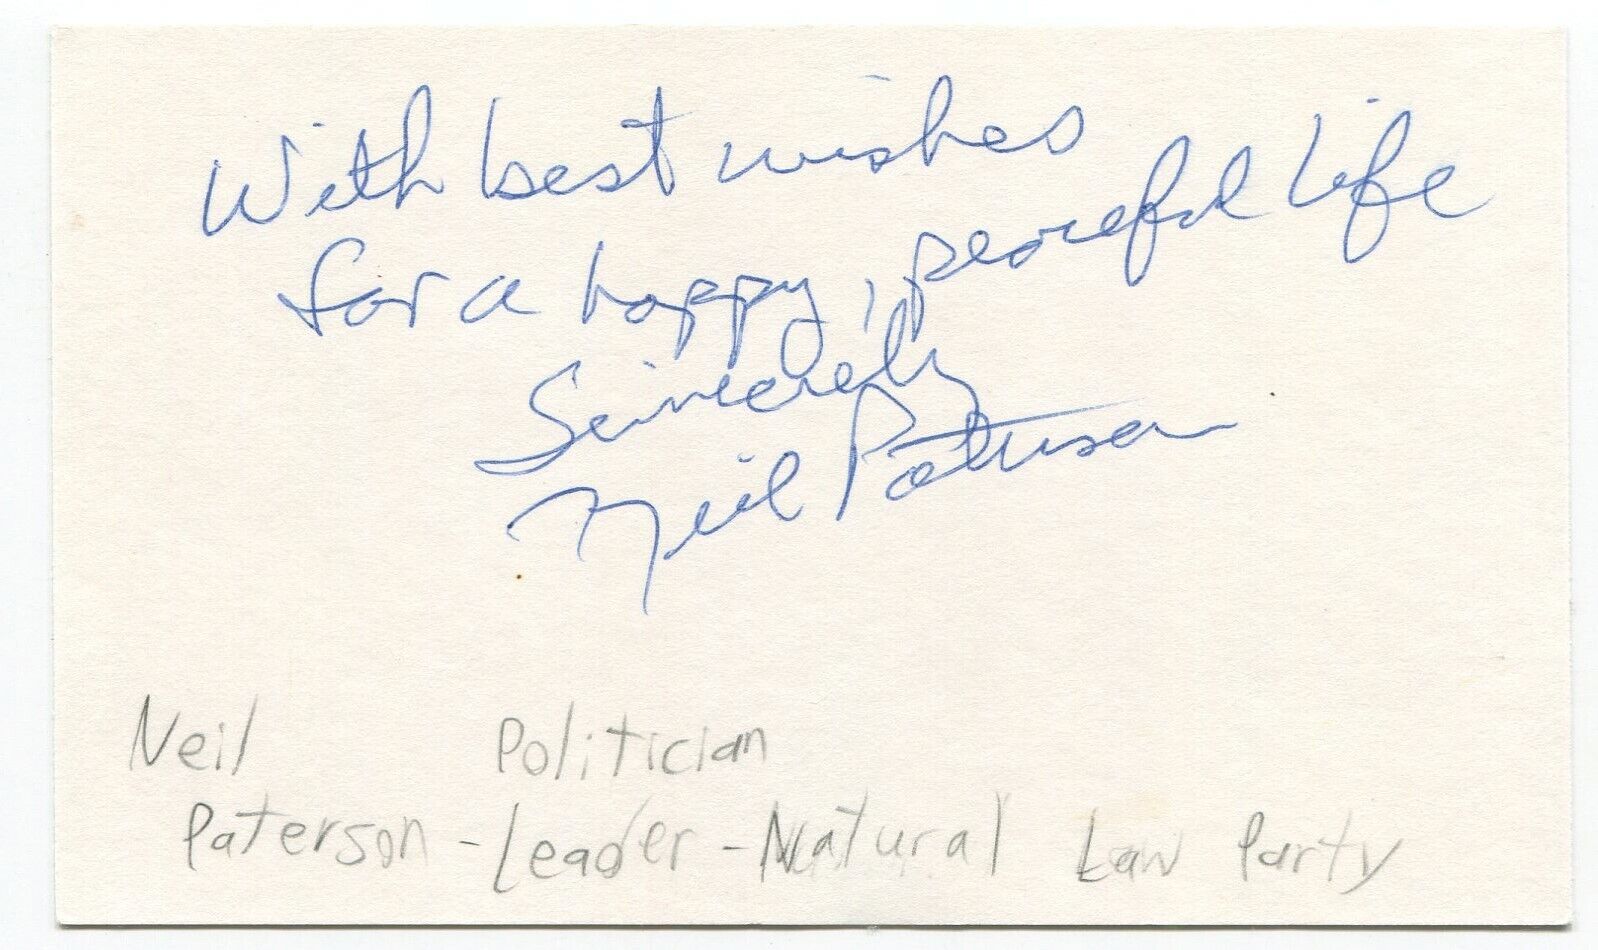 With best wishes
for a happy, peaceful life
Sincerely
Neil Paterson
Neil Politician
Paterson - Leader - Natural Law Party